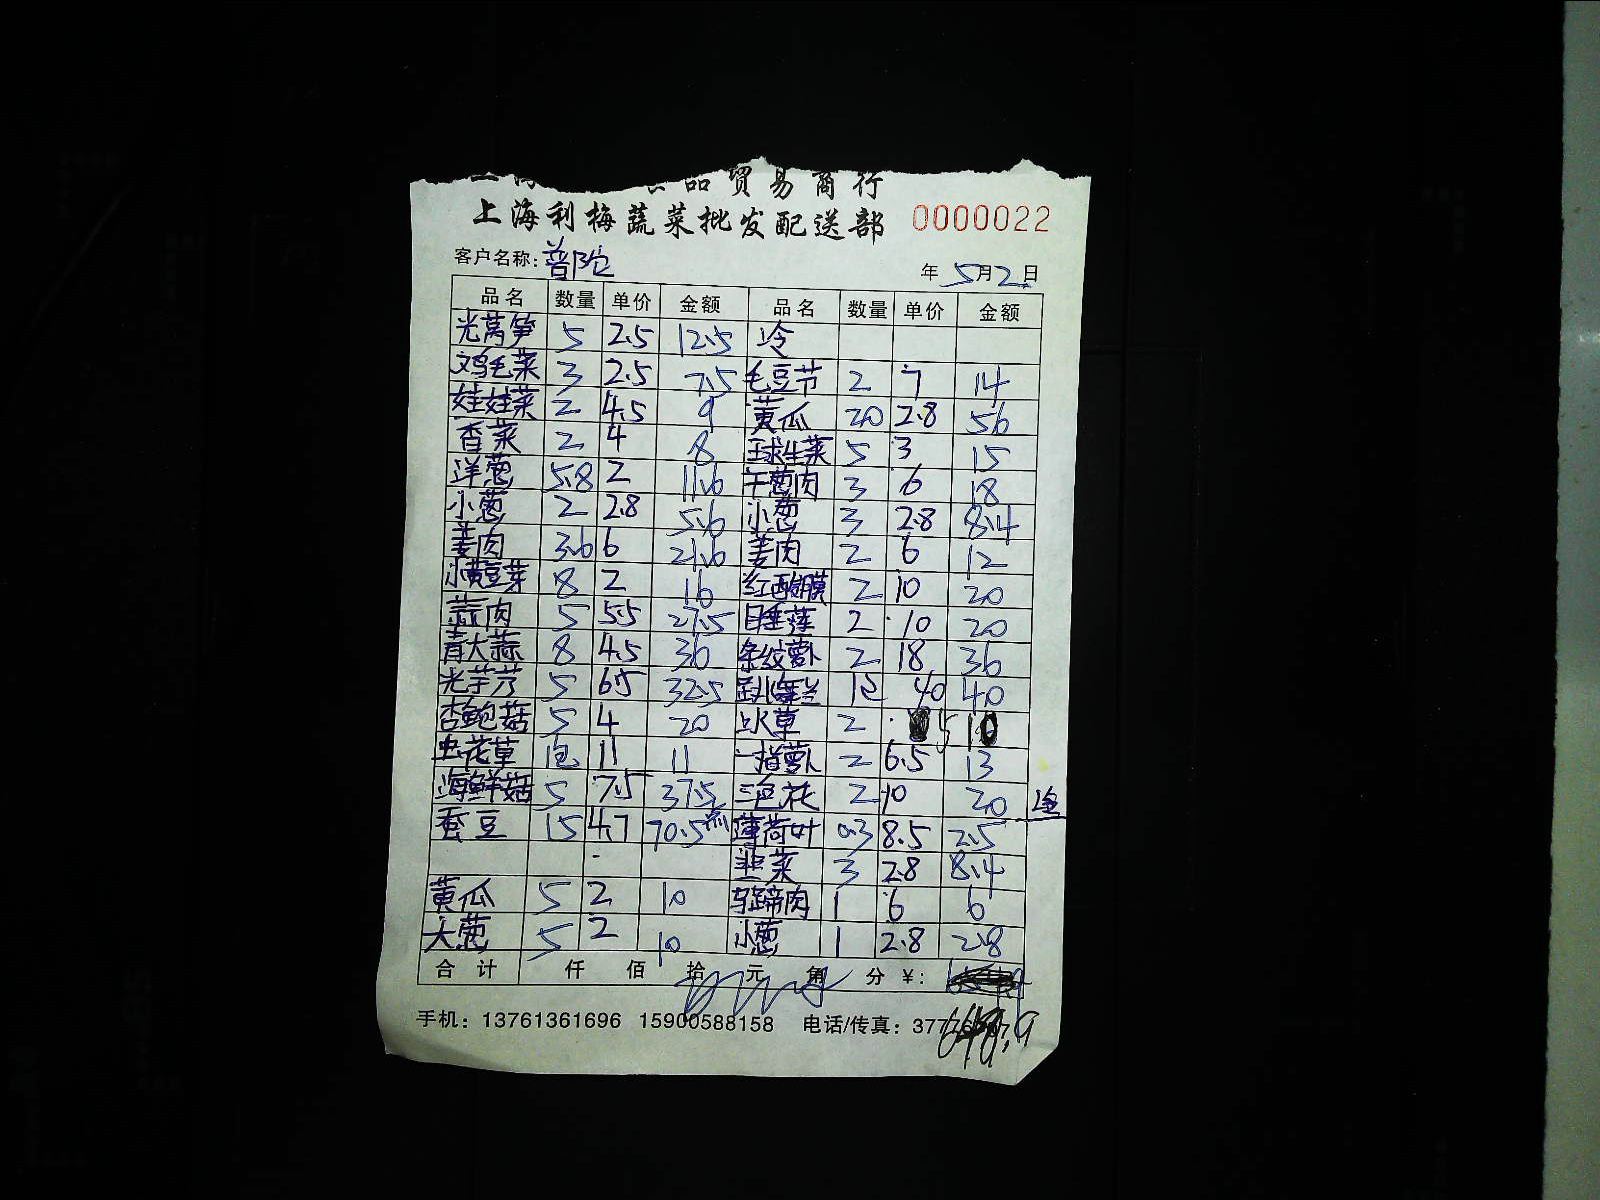 品贸易商行
上海利梅蔬菜批发配送部 0000022
客户名称:普陀 年5月2日
品名 数量 单价 金额 品名 数量 单价 金额
光莴笋 5 2.5 12.5 冷
鸡毛菜 3 2.5 7.5 毛豆节 2 7 14
娃娃菜 2 4.5 9 黄瓜 20 2.8 56
香菜 2 4 8 球生菜 5 3 15
洋葱 5.8 2 11.6 干葱肉 3 6 18
小葱 2 2.8 5.6 小葱 3 2.8 8.4
姜肉 3.6 6 21.6 姜肉 2 6 12
小黄豆芽 8 2 16 红酢浆 2 10 20
蒜肉 5 5.5 27.5 睡莲 2 10 20
青大蒜 8 4.5 36 条纹萝卜 2 18 36
光芋艿 5 6.5 32.5 跳舞兰 1包 40 40
杏鲍菇 5 4 20 冰草 2 5 10
虫花草 1包 11 11 一指萝卜 2 6.5 13
海鲜菇 5 7.5 37.5 三色花 2 10 20
蚕豆 15 4.7 70.5 薄荷叶 0.3 8.5 2.5
韭菜 3 2.8 8.4
黄瓜 5 2 10 马蹄肉 1 6 6
大葱 5 2 10 小葱 1 2.8 2.8
合计 仟 佰 拾 元 角 分 ¥:
手机: 13761361696 15900588158 电话/传真: 3777
648.9